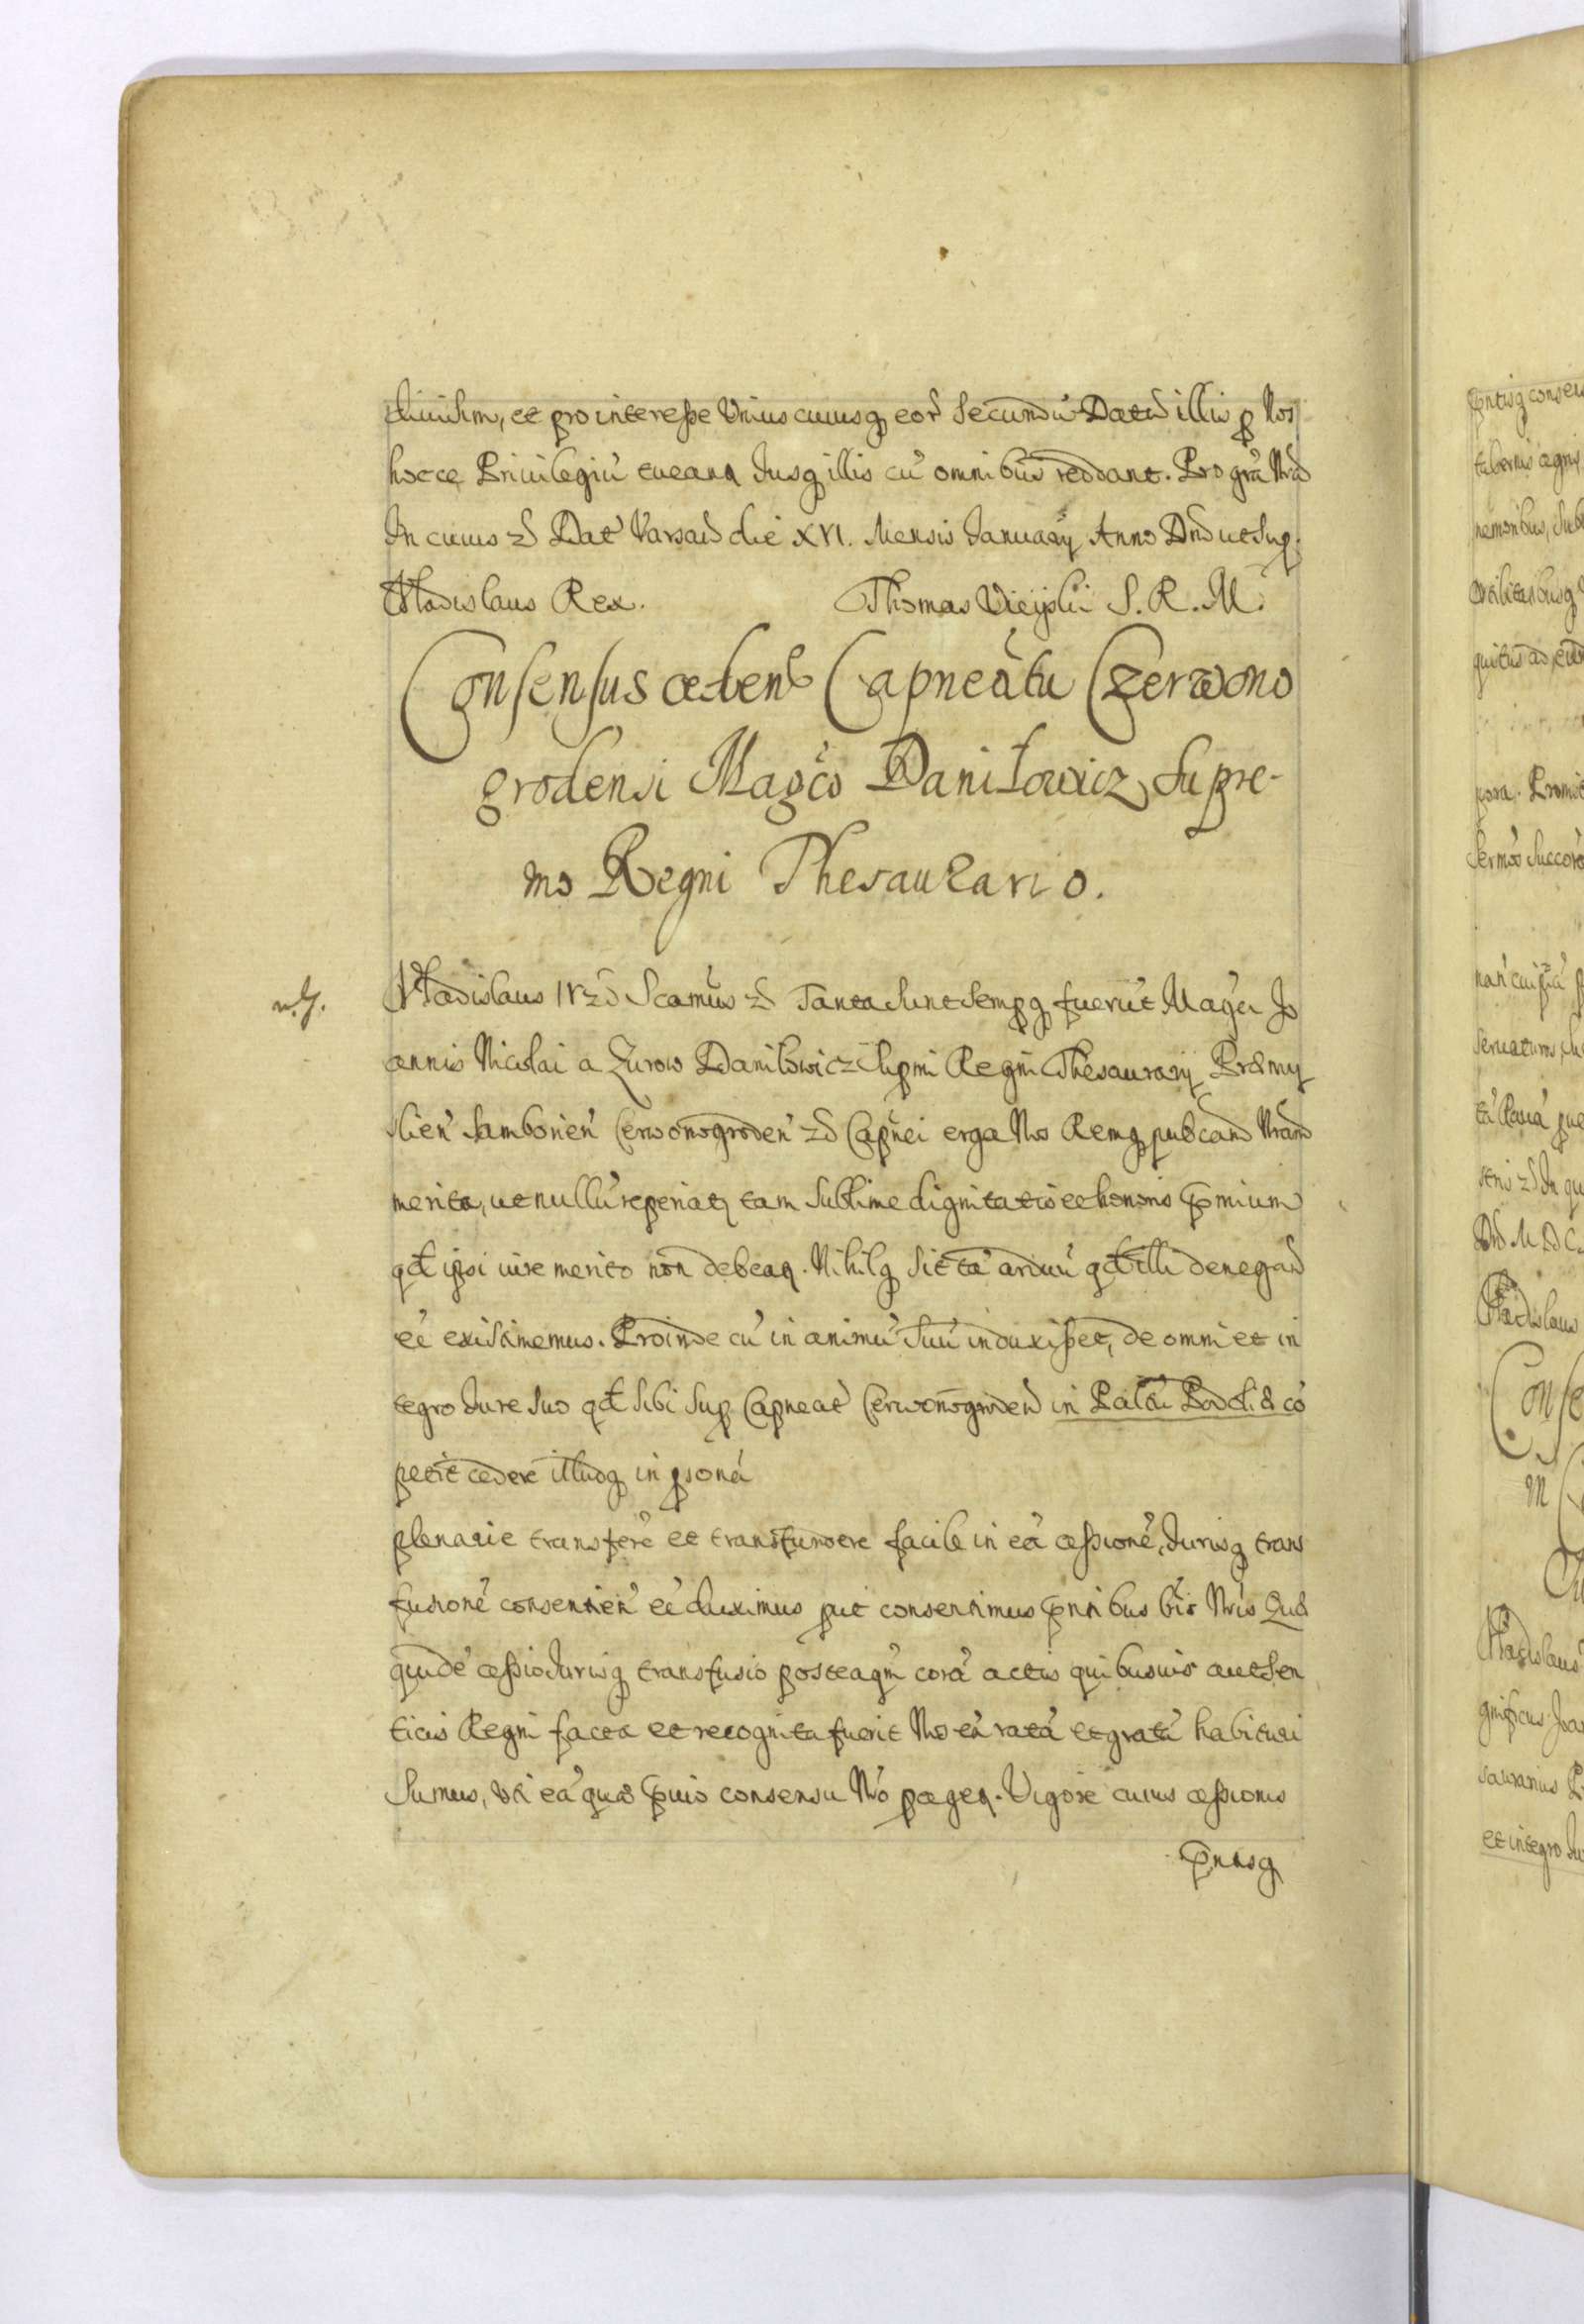 diuisim, et pro interesse Vnius cuiusq eor secundu Datu illis p Nos
hocce Priuilegiu tueanr Jusq illis cu omnibus reddant. Pro gra Nra
In cuius &c Dat Varsau die XVI. Mensis January Anno Dni ut sup.
Vladislaus Rex. Thomas Vieyski S. R. M.
Consensus ceden Capneatu Czerwono
grodensi Magco Daniłowicz Supre-
mo Regni Thesaurario.
Vladislaus IV &c Scamus &c Tanta sunt sempq fuerut Magci Jo
annis Nicolai a Zurow Daniłowicz Supmi Regni Thesaurarij Præmy
slien Samborien Cerwonogroden &c Capnei erga Nos Remq pubcam Nram
merita, ut nullu reperiatr tam sublime dignitatis et honoris pmium
qd ipsi iure merito non debear. Nihilq sit ta arduu qd illi denegand
ee existimemus. Proinde cu in animu suu induxisset, de omni et in
tegro Jure suo qd sibi sup Capneat Cerwonogroden in Palatu Podoliæ co
petit cedere illudq in psona
plenarie transfere et transfundere facile in ea cessione, Jurisq trans
fusione consentien ee duximus put consentimus pntibus lris Nris Quæ
quide cessio Jurisq transfusio posteaqm cora actis quibusuis authen
ticis Regni facta et recognita fuerit Nos ea rata et grata habituri
sumus, uti ea quæ puio consensu Nro pager. Vigore cuius cessionis
pntisq